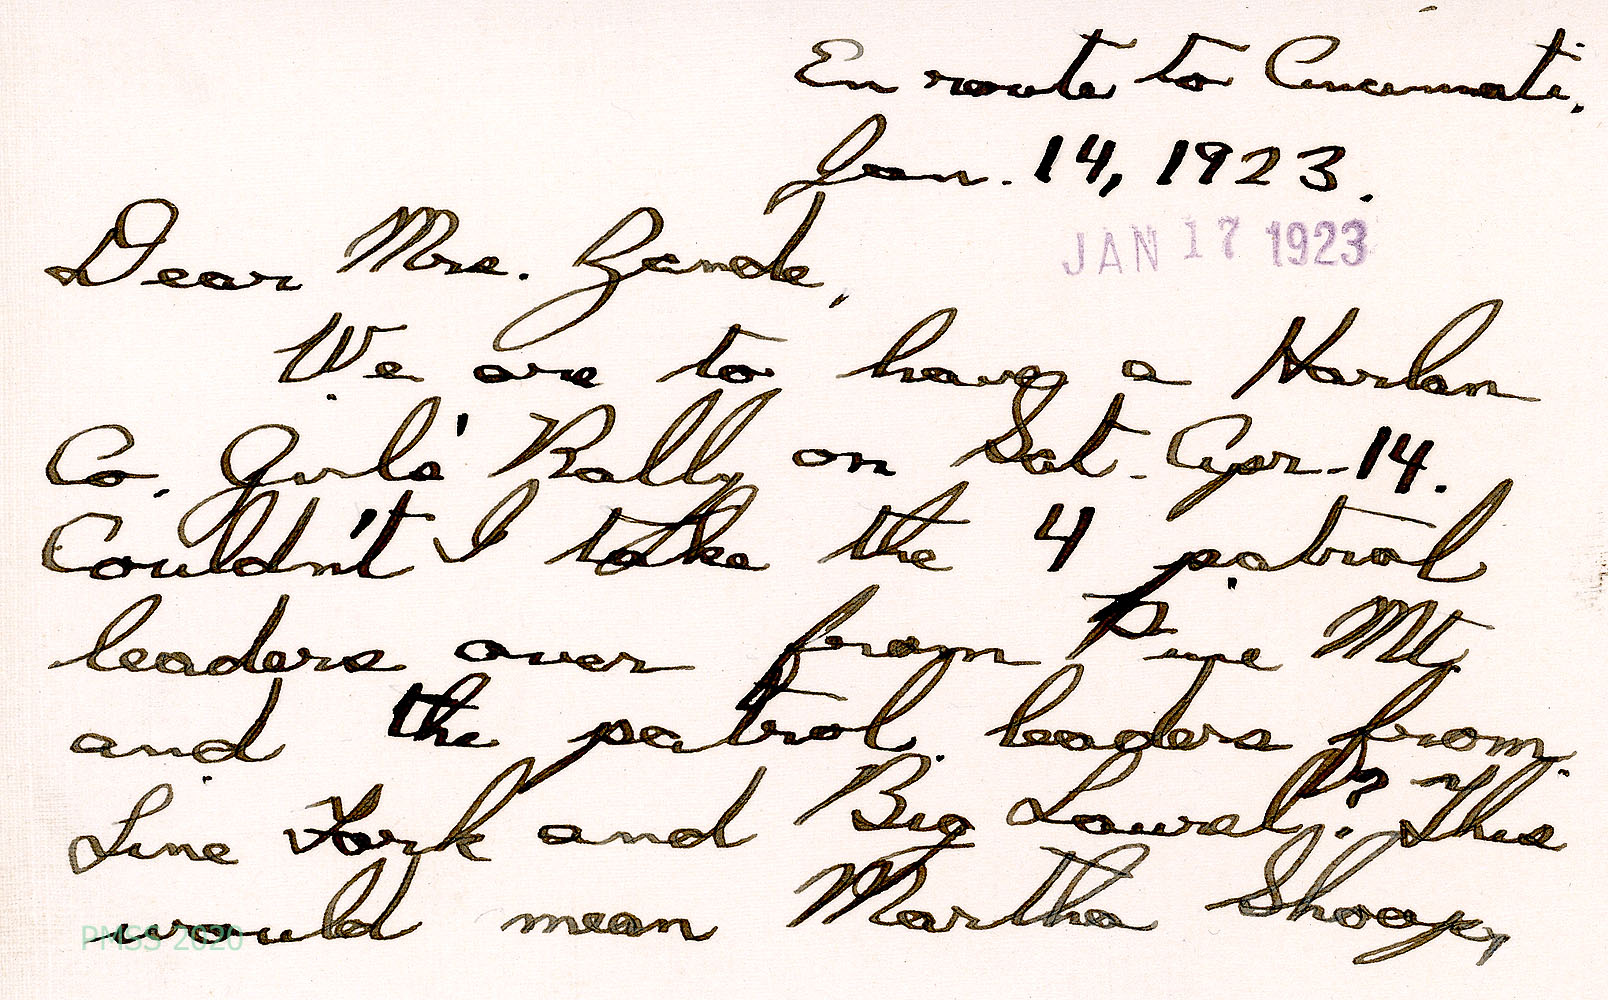 En route to Cincinnati.
Jan. 14, 1923.
JAN 17 1923
Dear Mrs. Zande,
We are to have a Harlan
Co. Girls' Rally on Sat. Apr. 14.
Couldn't I take the 4 patrol
leaders over from Pine Mt.
and the patrol leaders from
Line Fork and Big Laurel? This
would mean Martha Shoop,
PMSS 2020